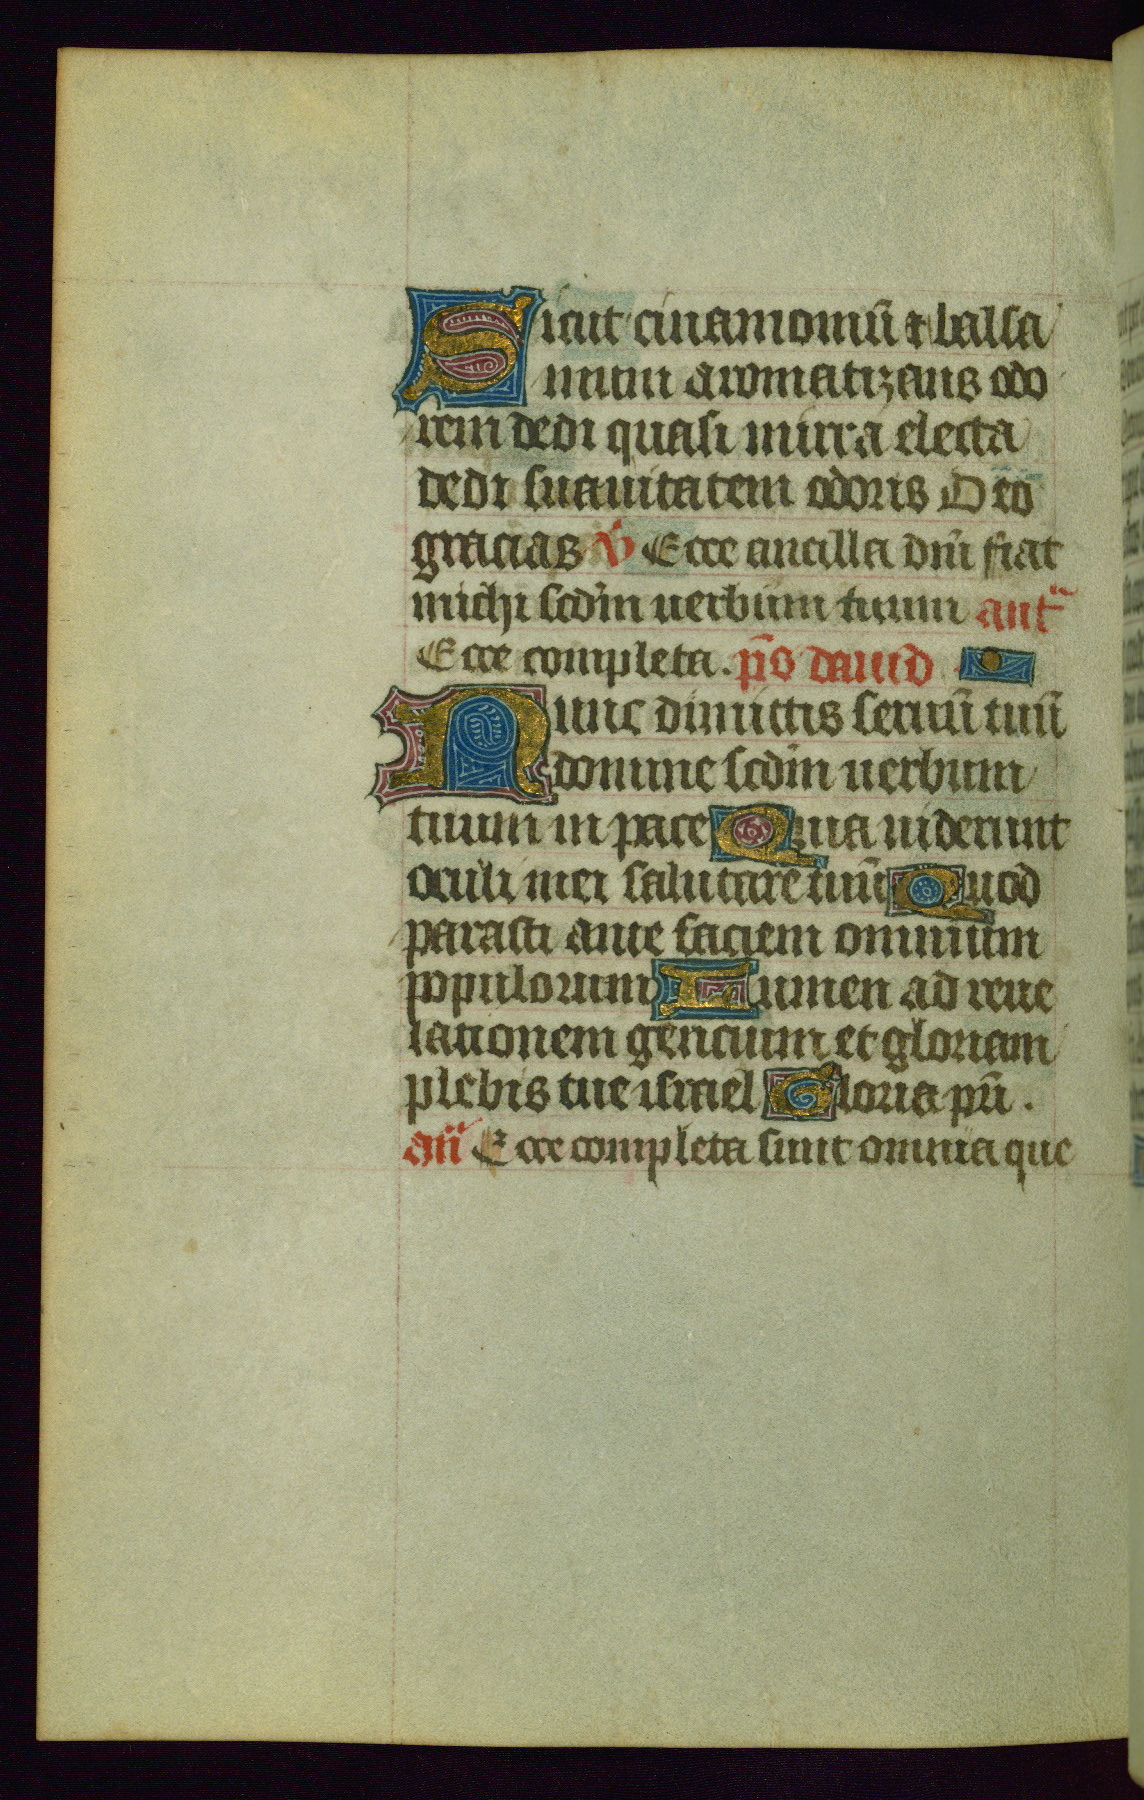 Sicut cinamomũ ⁊ balsa
mum aromatizans odo
rem dedi quasi mirra electa
dedi suauitatem odoris Deo
gracias ℣ Ecce ancilla dñi fiat
michi scdm̃ uerbum tuum ant̃
Ecce completa. p̃s dauid
Nunc dimittis seruũ tuũ
domine scdm̃ uerbum
tuum in pace Quia uiderunt
oculi mei salutare tuũ Quod
parasti ante faciem omnium
populorum Lumen ad reue
lationem gencium et gloriam
plebis tue israel Gloria pr̃i.
añ Ecce completa sunt omnia que